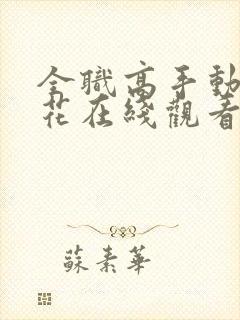 全職高手動
花在綫觀看
蘇素華